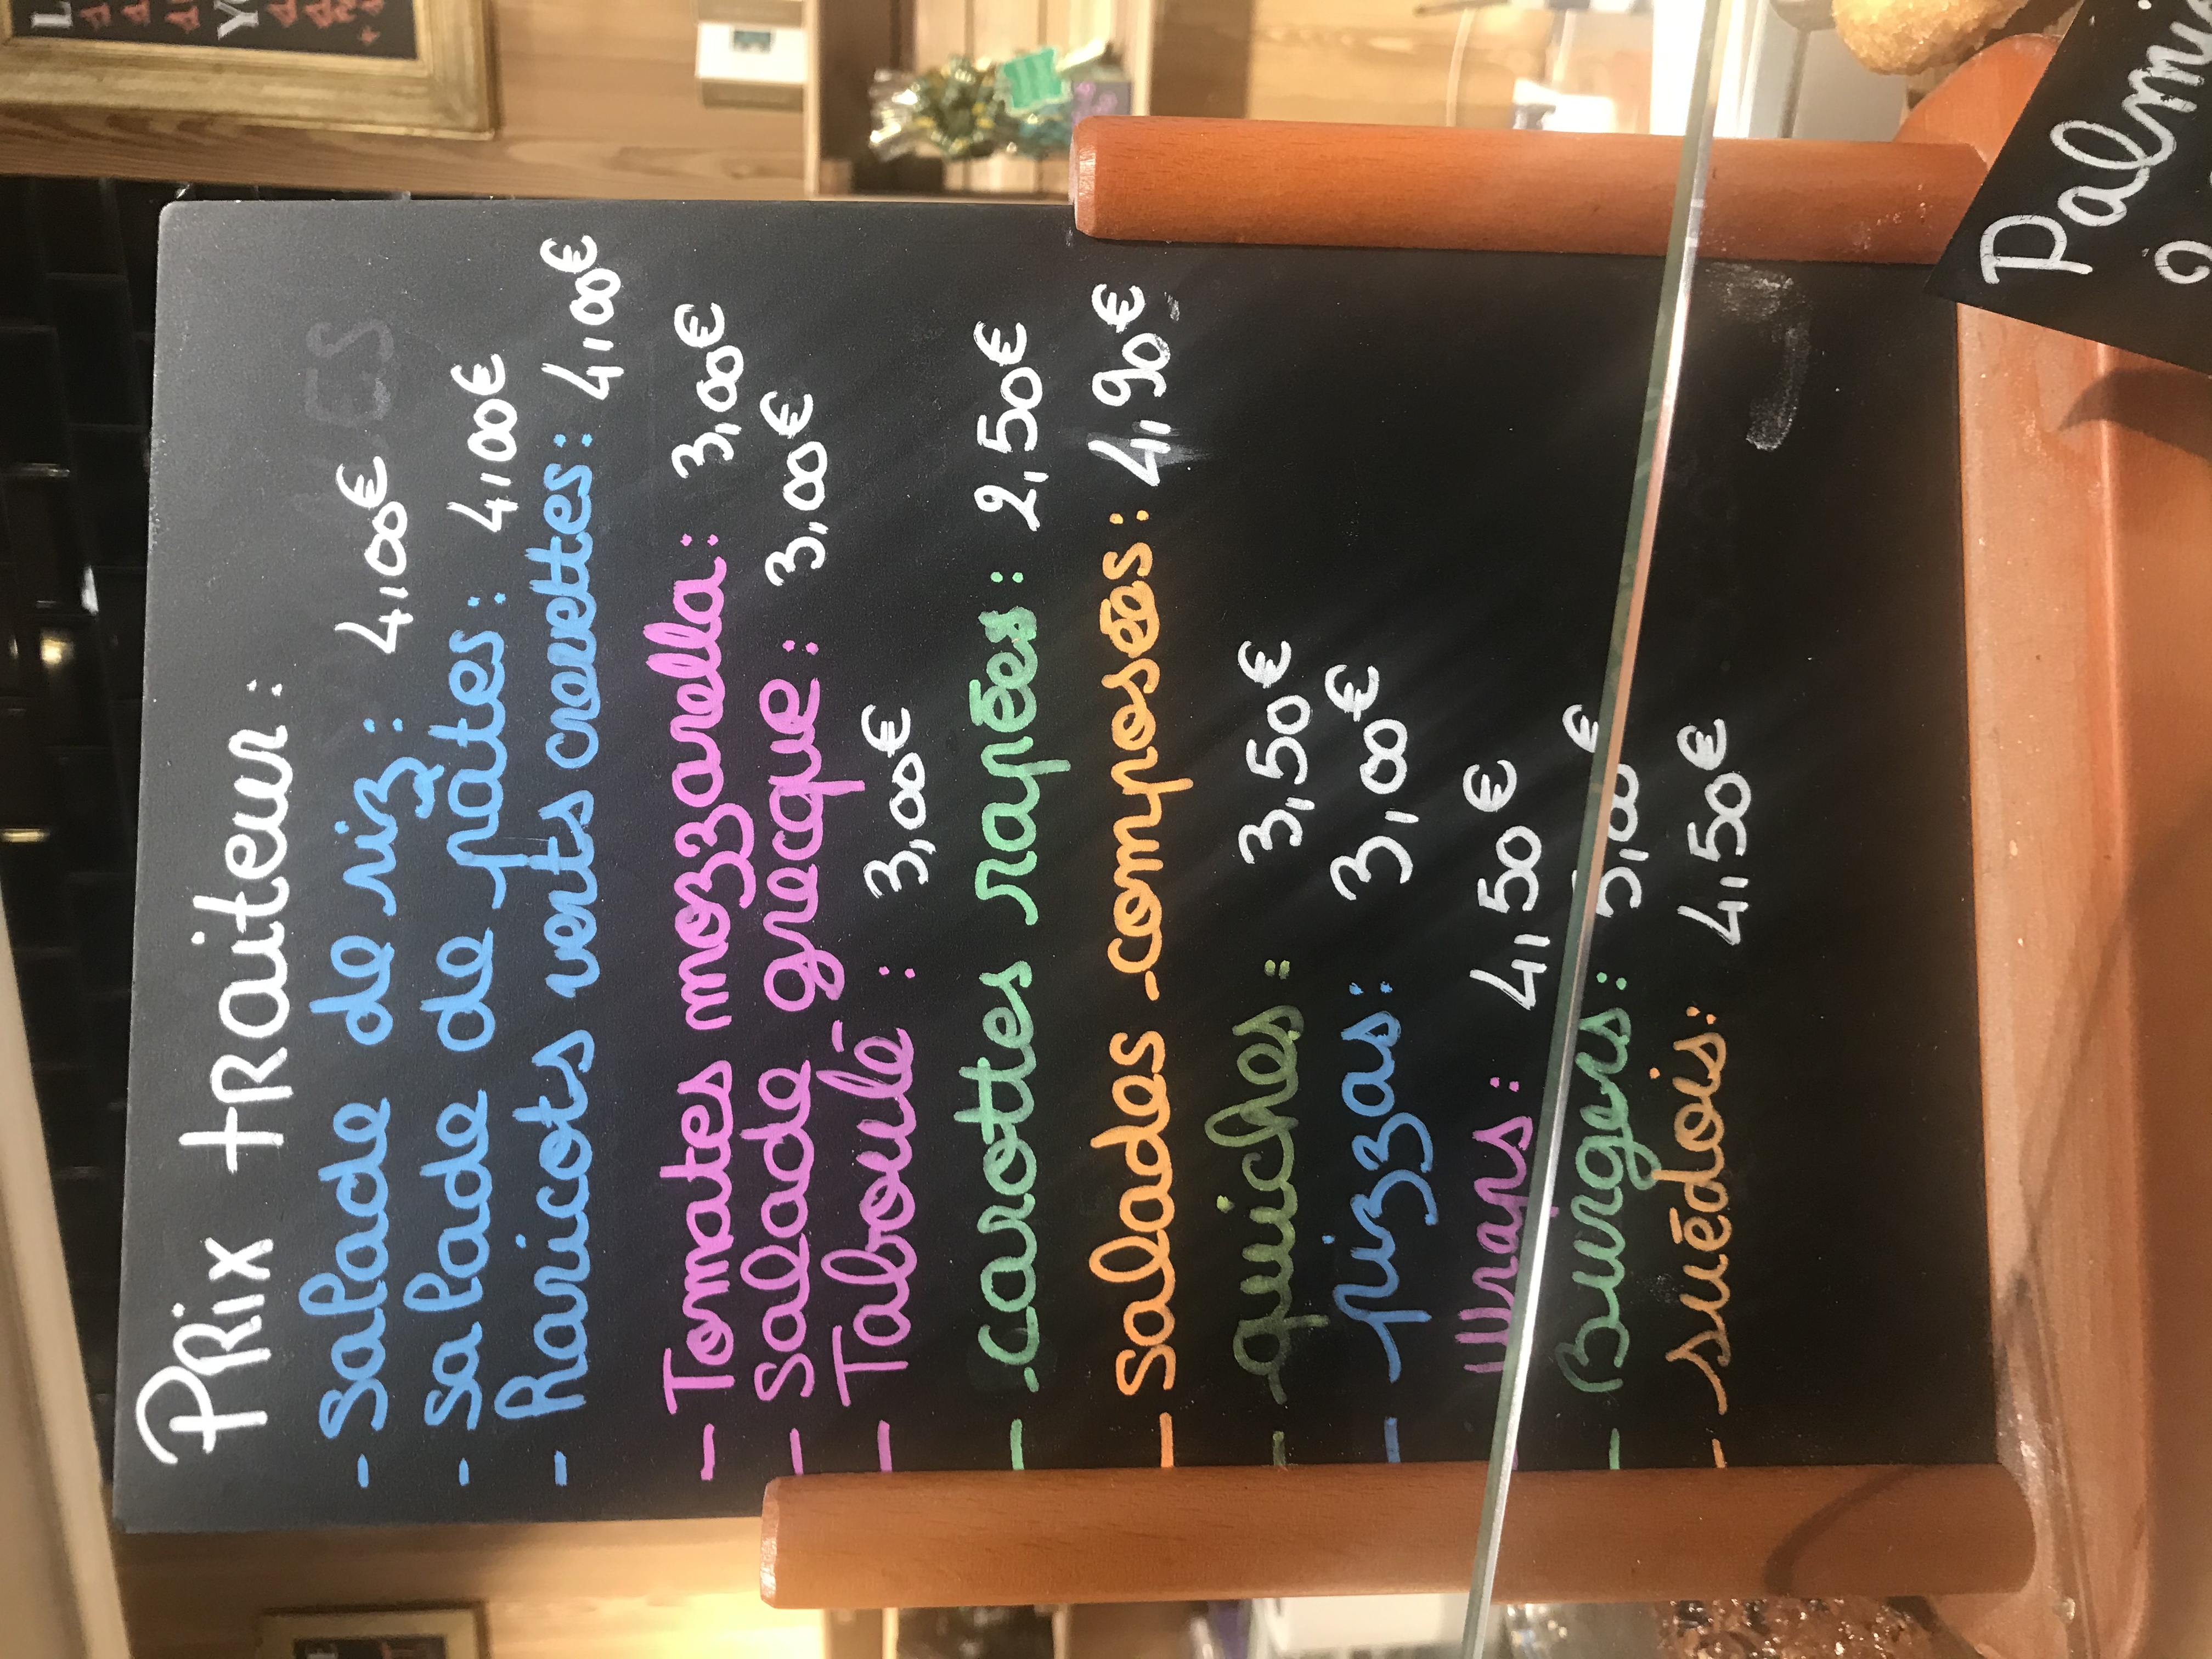 Prix traiteur :
- salade de riz : 4,00€
- salade de pâtes : 4,00€
- Haricots verts crevettes : 4,00€
- Tomates mozzarella : 3,00€
- Salade grecque : 3,00€
- Taboulé : 3,00€
- carottes rapées : 2,50€
- Salades composées : 4,90€
- quiches : 3,50€
- pizzas : 3,00€
- wraps : 4,50€
- Burgers : 5,00€
- suédois : 4,50€